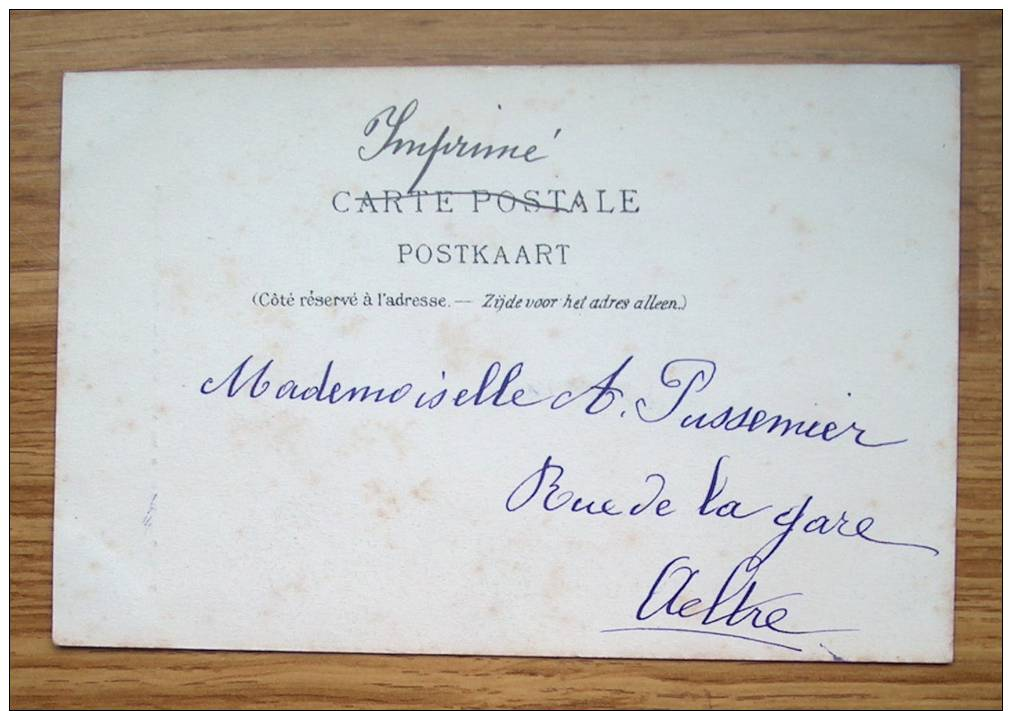 Imprimé
CARTE POSTALE
POSTKAART
(Côté réservé à l'adresse. — Zijde voor het adres alleen.)
Mademoiselle A. Pussemier
Rue de la gare
Aeltre